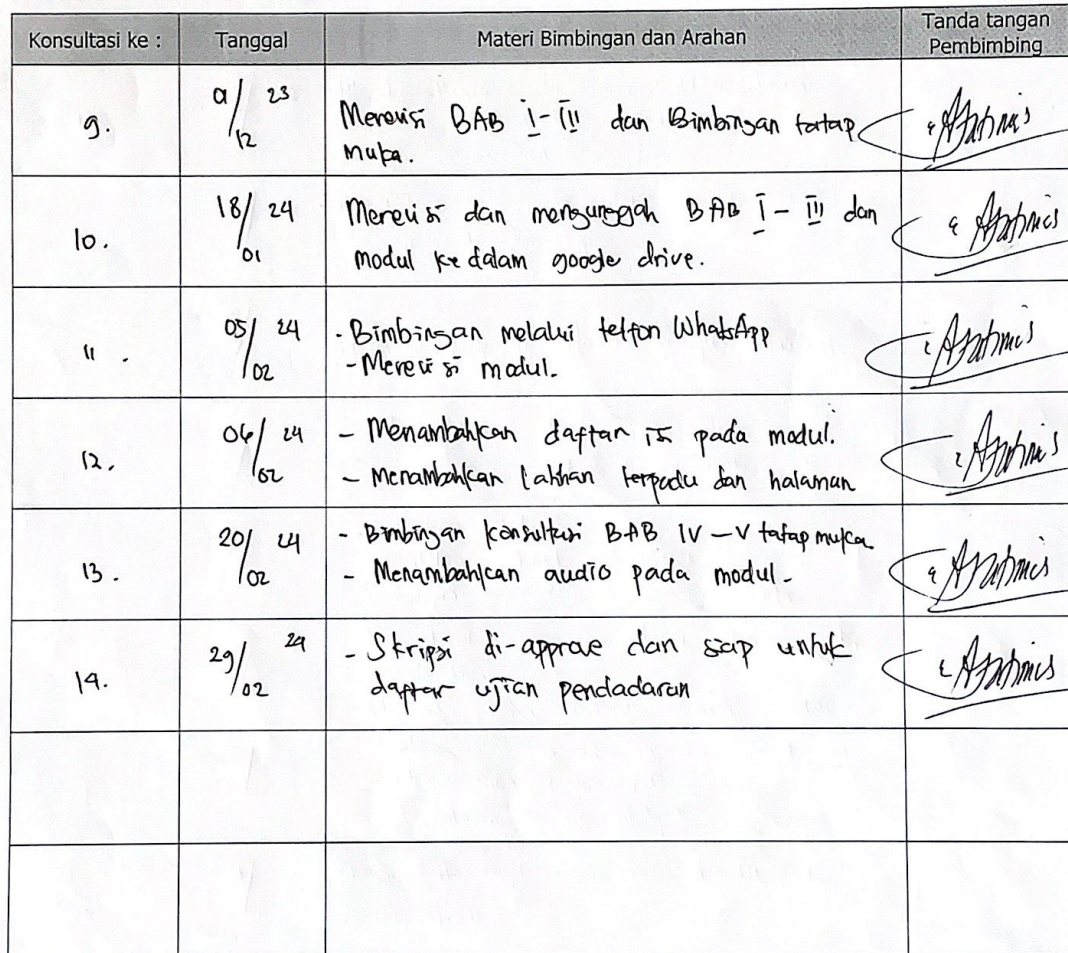 Konsultasi ke : Tanggal Materi Bimbingan dan Arahan Tanda tangan
Pembimbing
9. 9/12 23 Merevisi BAB I-III dan Bimbingan tatap
muka.
10. 18/01 24 Merevisi dan mengunggah BAB I - III dan
modul ke dalam google drive.
11. 05/02 24 - Bimbingan melalui telfon WhatsApp
- Merevisi modul.
12. 06/02 24 - Menambahkan daftar isi pada modul.
- Menambahkan latihan terpadu dan halaman
13. 20/02 24 - Bimbingan konsultasi BAB IV - V tatap muka
- Menambahkan audio pada modul.
14. 29/02 24 - Skripsi di-approve dan siap untuk
daftar ujian pendadaran